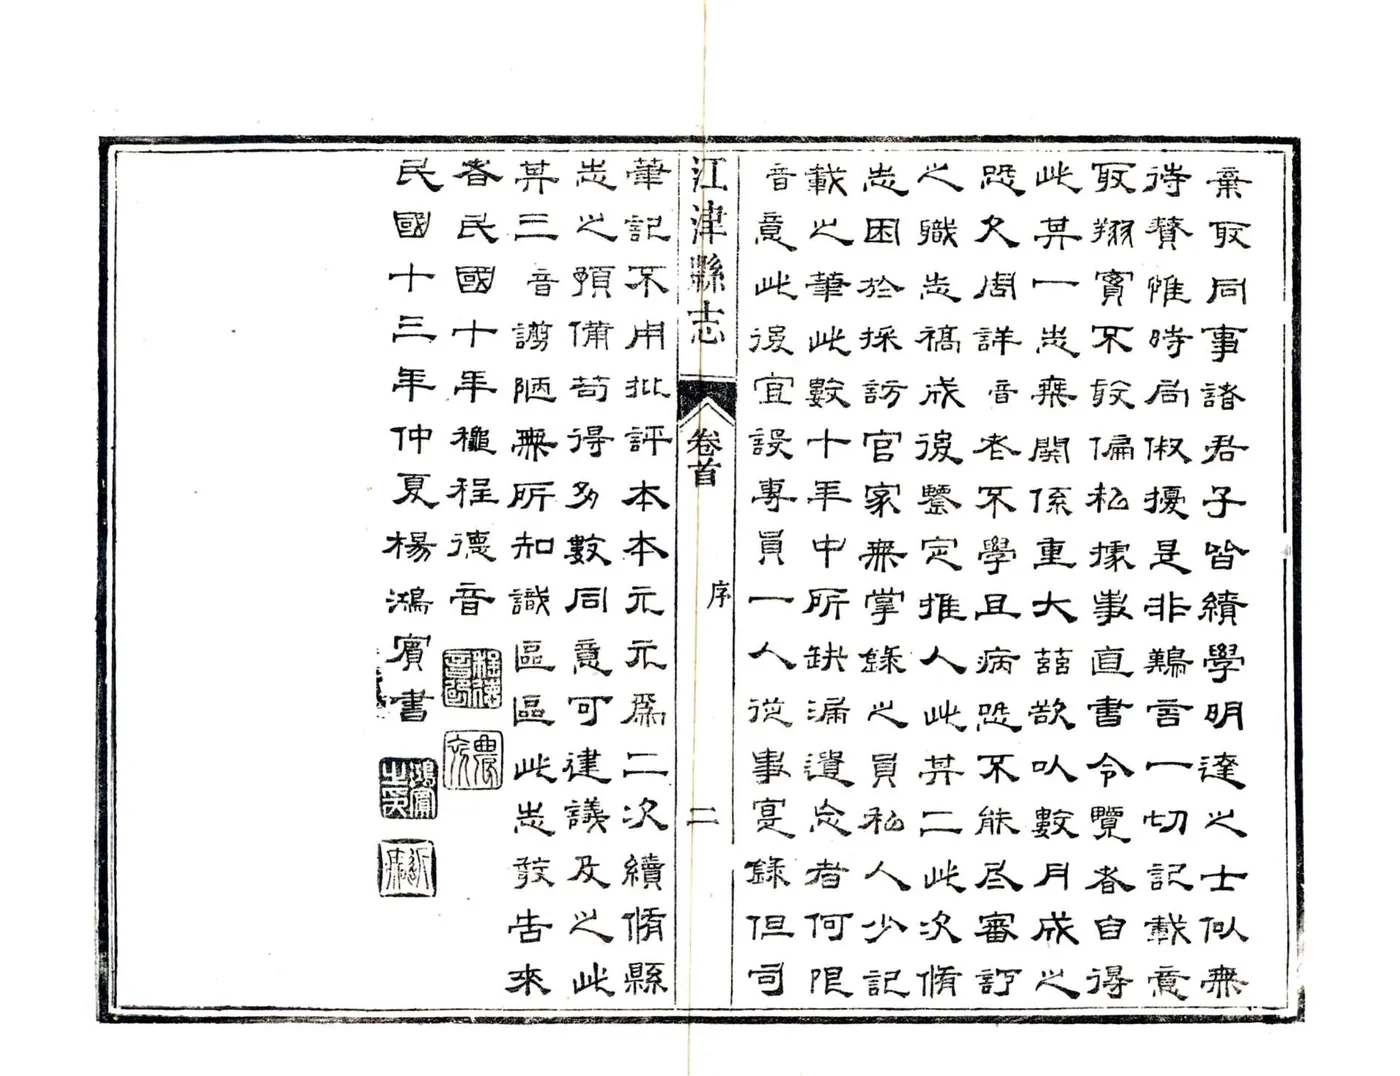 棄取同事諸君子皆績學明達之士似無
待贅惟時局俶擾是非難言一切記載意
取翔實不敢偏私據事直書令覽者自得
此其一志乘關係重大茲欲以數月成之
既欠周詳音老不學且病既不能尽審訂
之職志稿成後鑒定推人此其二此次脩
志困於採訪官家無掌錄之員私人少記
載之筆此數十年中所缺漏遺忘者何限
音意此後宜設專員一人從事寔錄但司
江津縣志
卷首
序
二
筆記不用批評本本元元爲二次續脩縣
志之預備苟得多數同意可建議及之此
其三音謭陋無所知識區區此志敬告來
者民國十年穐程德音
民國十三年仲夏楊鴻賓書
鴻賓之印